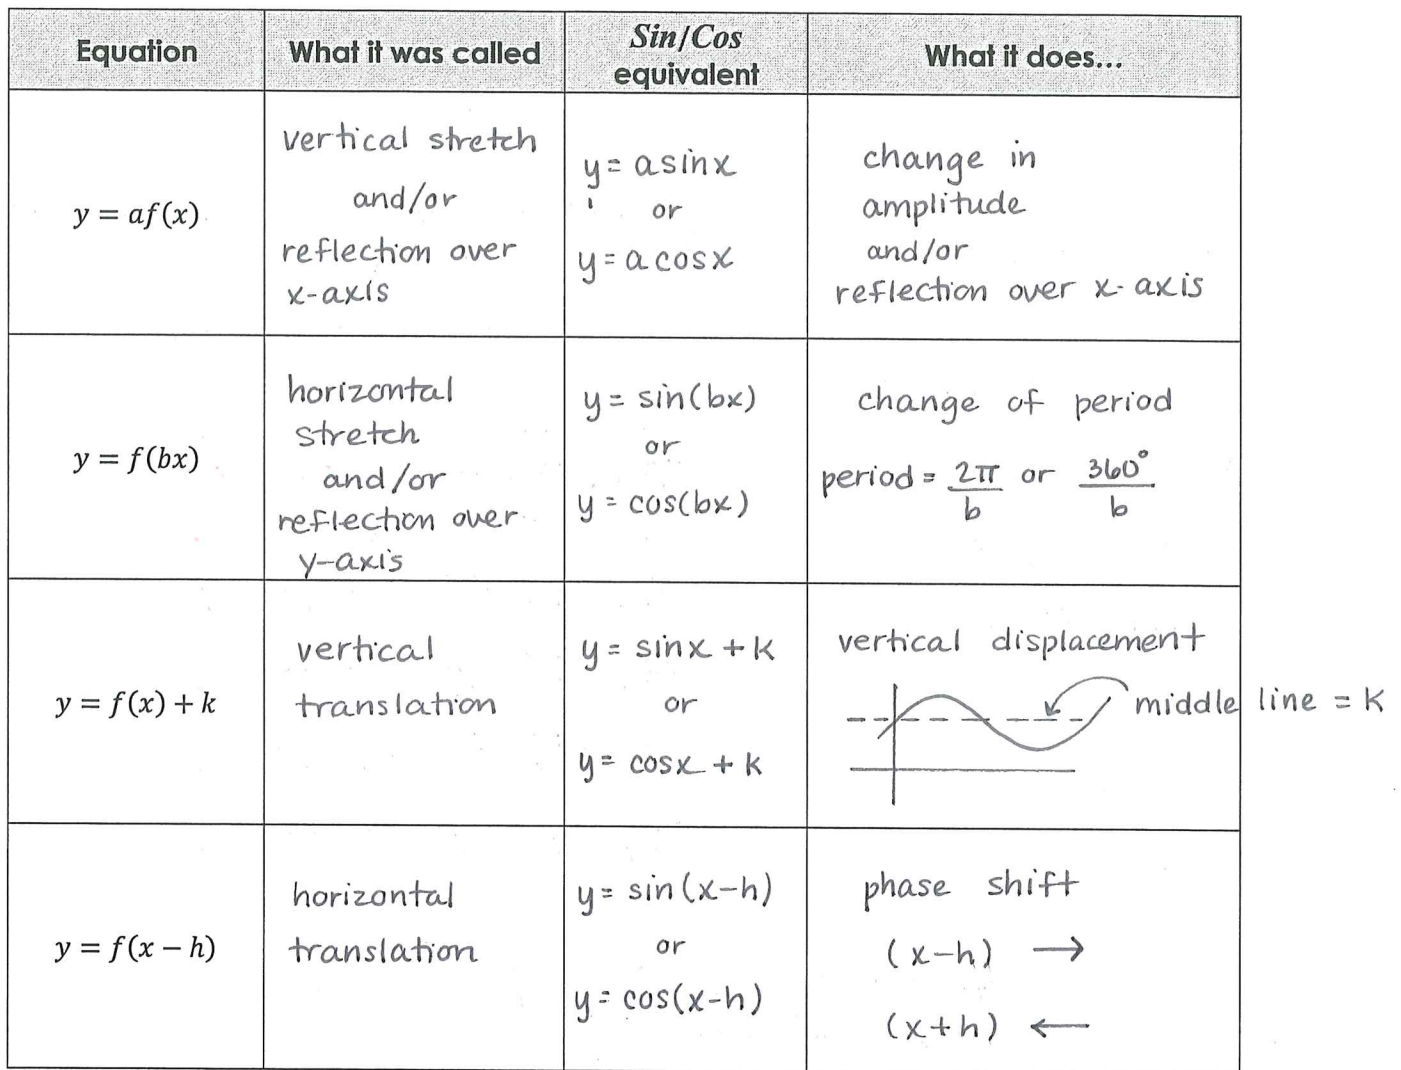 Equation
What it was called
Sin/Cos
equivalent
What it does...
y = af(x)
vertical stretch
and/or
reflection over
x-axis
y = a sinx
or
y = a cosx
change in
amplitude
and/or
reflection over x-axis
y = f(bx)
horizontal
stretch
and/or
reflection over
y-axis
y = sin(bx)
or
y = cos(bx)
change of period
period = 2π/b or 360°/b
y = f(x) + k
vertical
translation
y = sinx + k
or
y = cosx + k
vertical displacement
middle line = k
y = f(x − h)
horizontal
translation
y = sin(x-h)
or
y = cos(x-h)
phase shift
(x-h) →
(x+h) ←